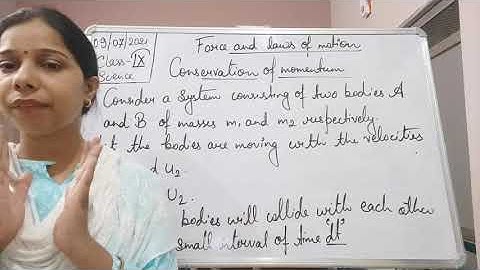 09/07/2021
Class-IX
Science
Force and laws of motion
Conservation of momentum
Consider a system consisting of two bodies A
and B of masses m₁ and m₂ respectively.
the bodies are moving with the velocities
U₂.
U₂.
bodies will collide with each other
small interval of time 'dt'